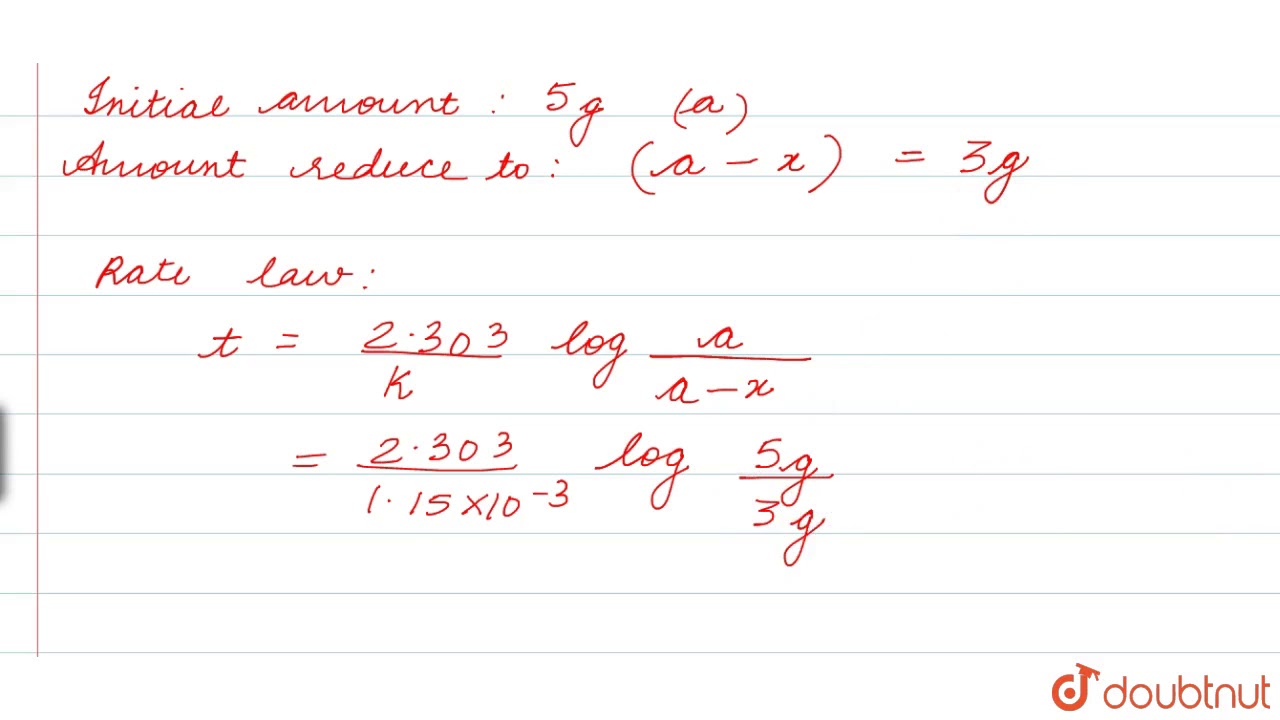 Initial amount : 5g (a)
Amount reduce to : (a - x) = 3g
Rate law :
t = 2.303 / K log a / a - x
= 2.303 / 1.15 x 10^-3 log 5g / 3g
doubtnut